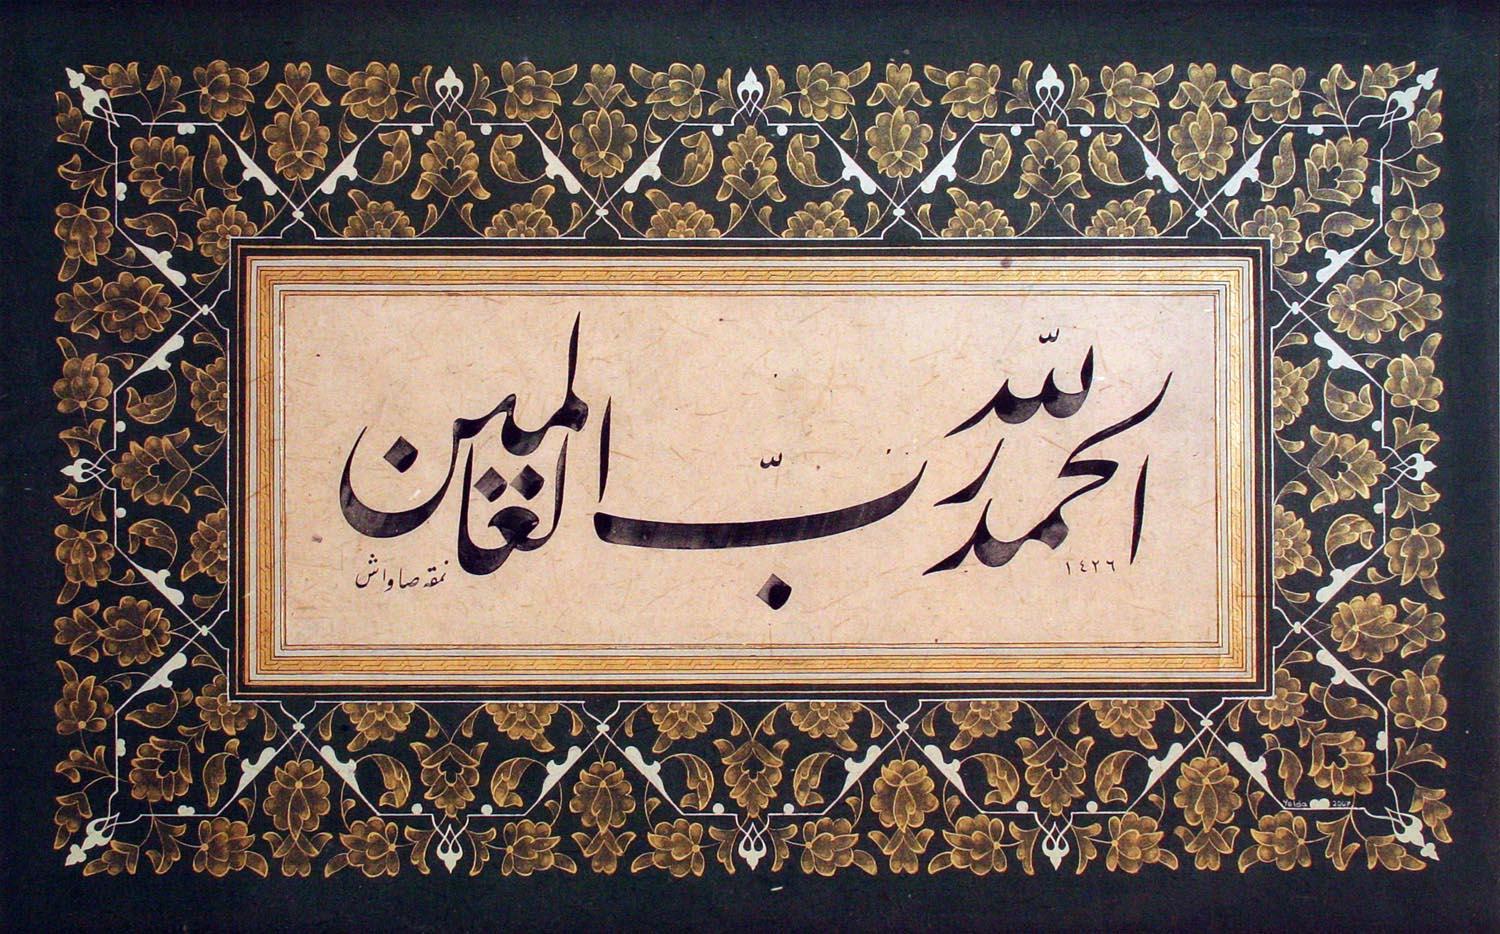 الحمد لله ربّ العالمين
١٤٢٦
نمقه صاواش
Yelda 2007